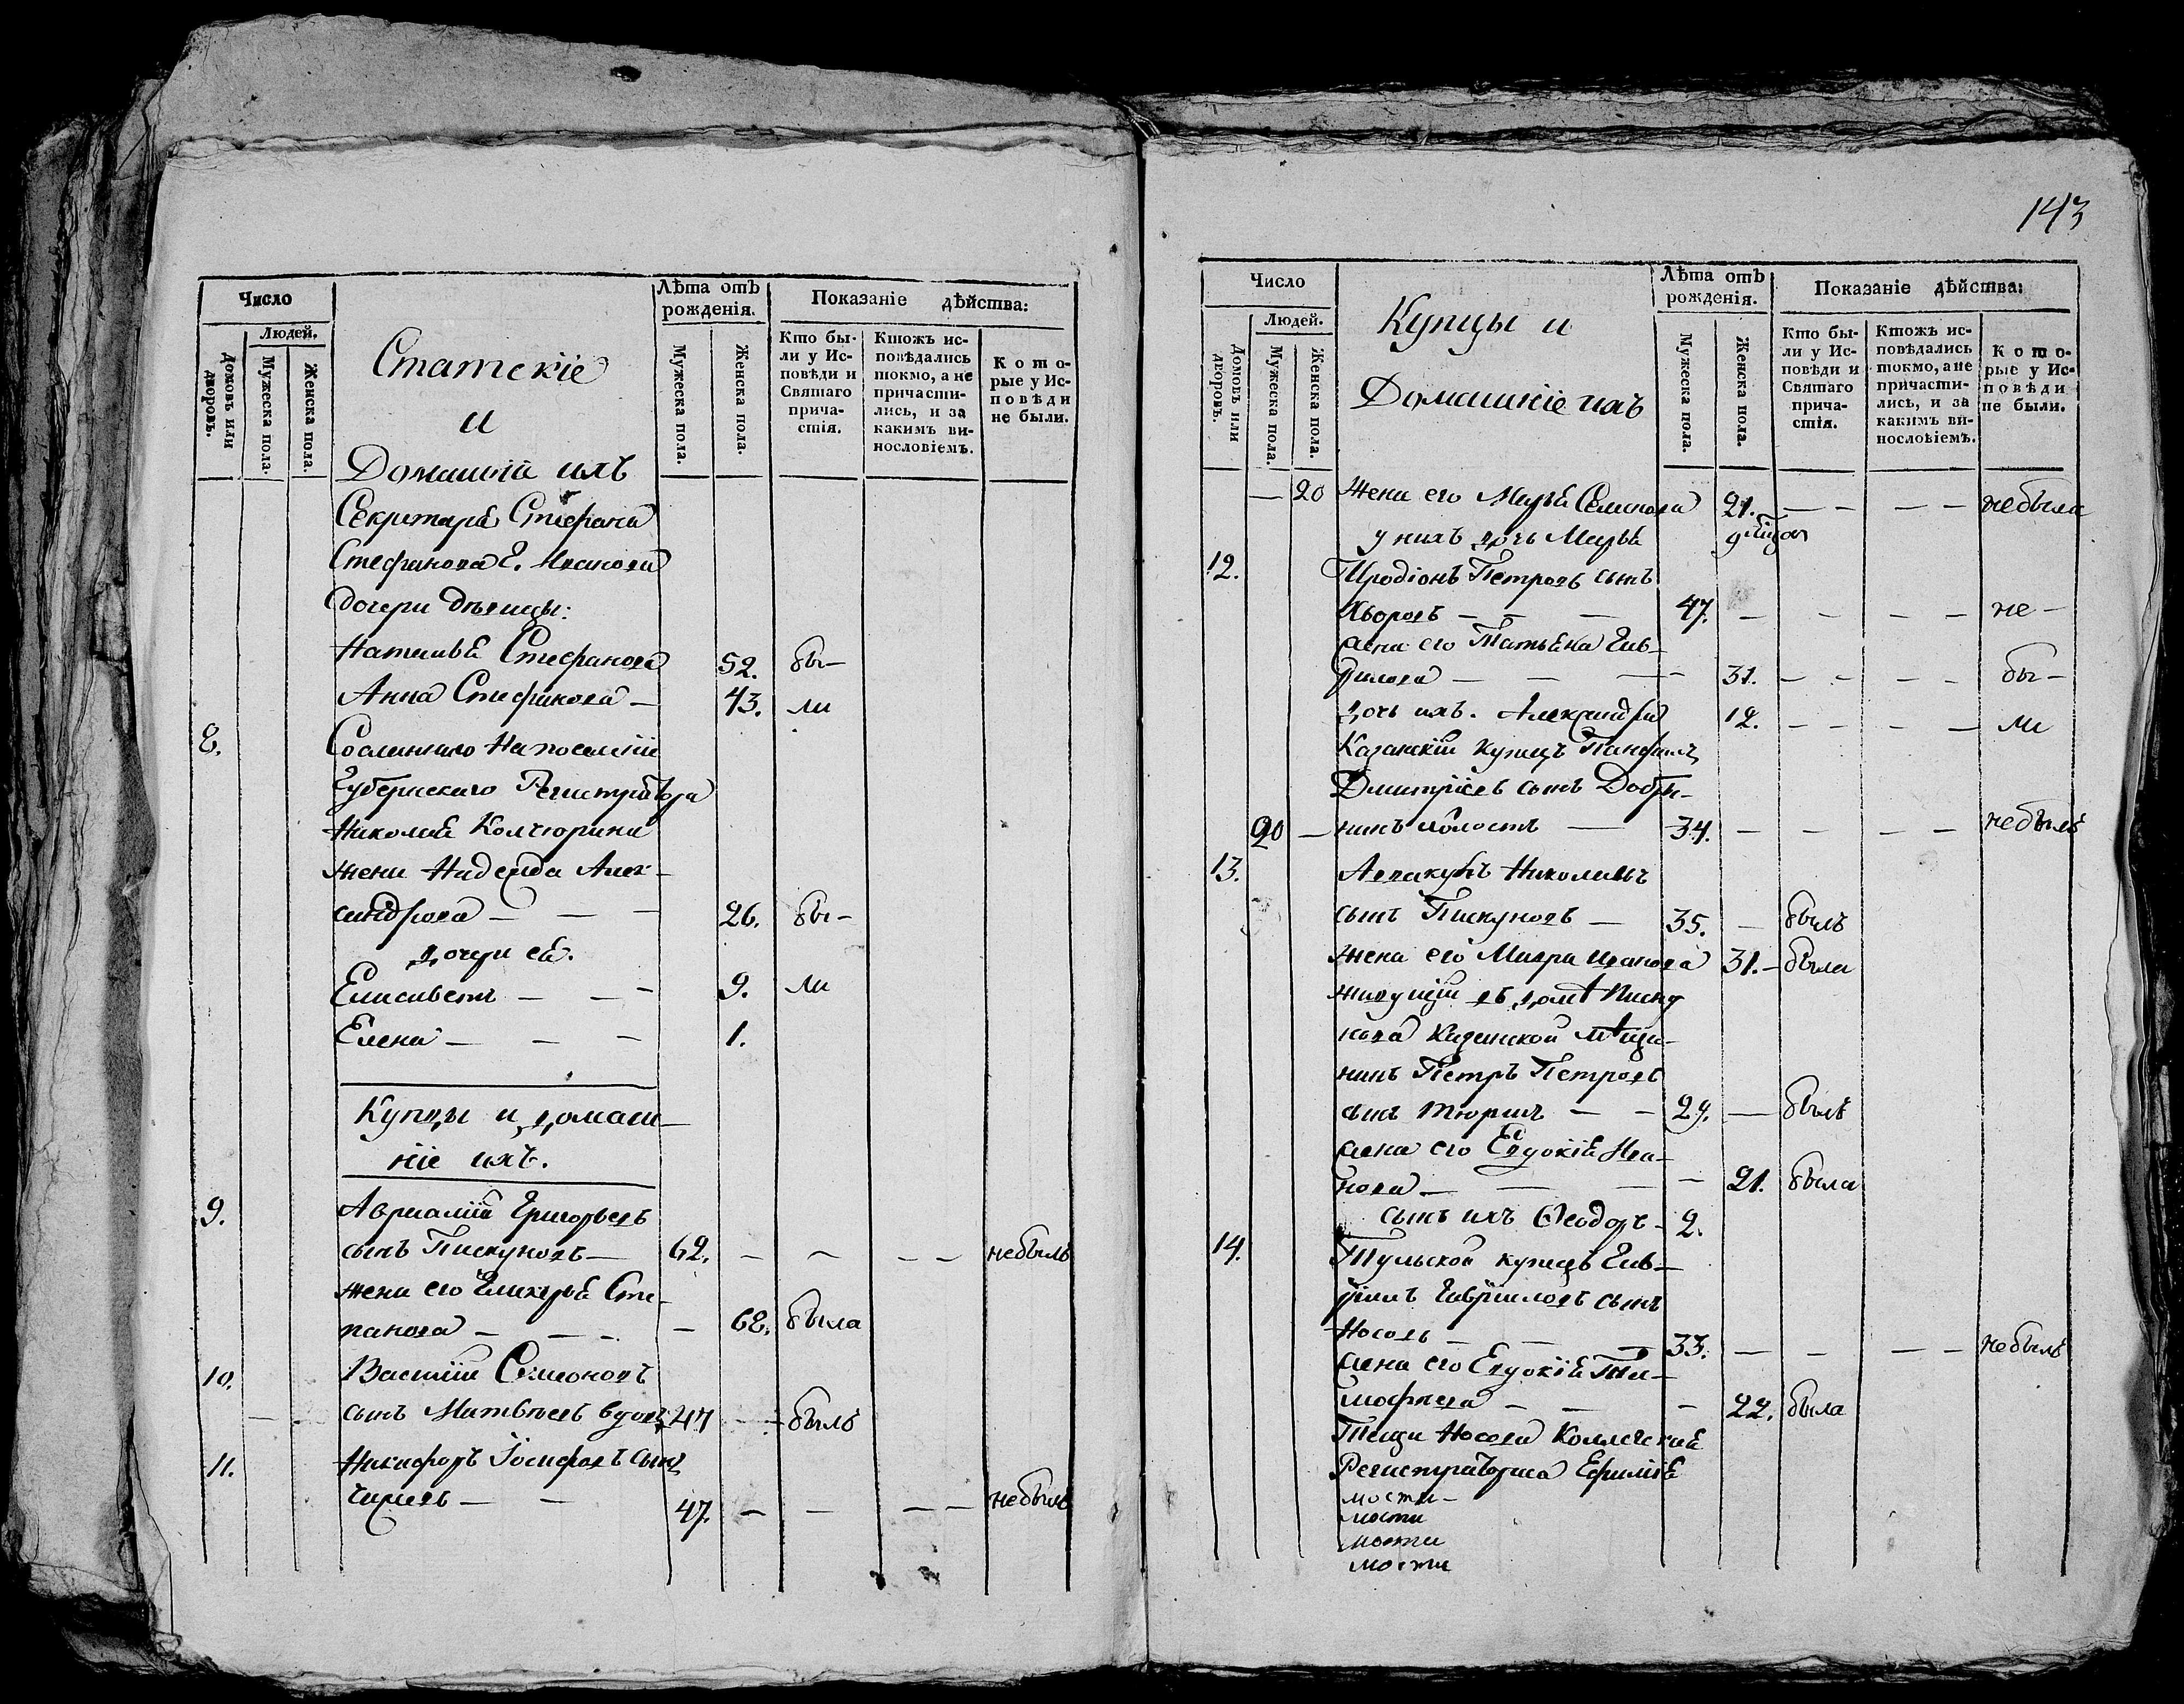 Число
Людей.
Домовъ или дворовъ.
Мужеска пола.
Женска пола.
Статскіе
и
Домашніе ихъ
Лѣта отъ рожденія.
Мужеска пола.
Женска пола.
Показаніе дѣйства:
Кто бы-
ли у Ис-
повѣди и
Святаго
прича-
стія.
Ктожъ ис-
повѣдались
токмо, а не
причасти-
лись, и за
какимъ ви-
нословіемъ.
Кото-
рые у Ис-
повѣди
не были.
Секретаря Стефана
Стефанова
дочери дѣвицы:
Наталья Стефанова 52. бы-
Анна Стефанова — 43. ли
8. Сосланнаго на поселеніе
Губернскаго Регистратора
Николая Колчюрина
жена Надежда Алек-
сандрова — — — 26. бы-
дочери ея.
Елисаветъ — — — 9. ли
Елена — — — 1.
Купцы и домаш-
ніе ихъ.
9. Аврамій Григорьевъ
сынъ Пискуновъ — 62. — — — — небылъ
жена его Гликерья Сте-
панова — — — — 62. была
10. Василій Симоновъ
— — сынъ Матвѣевъ вдовъ 47 — — былъ
11. Никифоръ Іосифовъ сынъ
— — 47. — — — — небылъ
143
Число
Людей.
Домовъ или дворовъ.
Мужеска пола.
Женска пола.
Купцы и
Домашніе ихъ
Лѣта отъ рожденія.
Мужеска пола.
Женска пола.
Показаніе дѣйства:
Кто бы-
ли у Ис-
повѣди и
Святаго
прича-
стія.
Ктожъ ис-
повѣдались
токмо, а не
причасти-
лись, и за
какимъ ви-
нословіемъ.
Кото-
рые у Ис-
повѣди
не были.
— 20 жена его Марья Семенова 21. — — — — небыла
у нихъ дочь Марья 9
12. Иродіонъ Петровъ сынъ
— — — 47. — — — — не-
жена его Татьяна Гав-
рилова — — — — 31. — — — — бы-
дочь ихъ. Александра 12. — — — — ли
Казанскій купецъ Панфилъ
Дмитріевъ сынъ Добры-
20 — нинъ холостъ — 34. — — — — небылъ
13. Аввакумъ Николаевъ
сынъ Пискуновъ — 35. — былъ
жена его Мавра Иванова 31. — была
живущій въ домѣ Писку
нова Казанской мѣща-
нинъ Петръ Петровъ
сынъ Тюринъ — — 29. — былъ
жена его Евдокія Ива-
нова — — — — 21. была
сынъ ихъ Ѳеодоръ — 2.
14. Тульской купецъ Гав-
рилъ Гавриловъ сынъ
Носовъ — — — 33. — — — — небылъ
жена его Евдокія Ти-
мофѣева — — — 22. была
Теща Носова Коллежская
Регистраторша Ефимія
мости-
мости
мости
мости